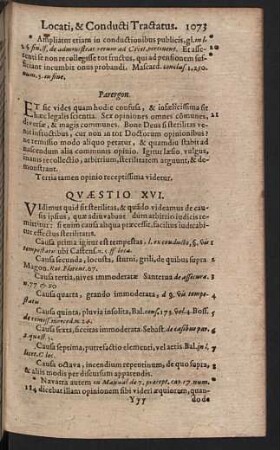 Locati, & Conducti Tractatus. 1073
Ampliatur etiam in conductionibus publicis,
fin. ff. de administrat. rerum ad Civit. pertinent. Et asse-
netur si non recollegisse tot fructus, qui ad pensionem suf-
ficiant incumbit onus probandi. Mascard. conclus. 1210.
num. 3. in fine.
Parergon.
Et sic vides quam hodie confusa, & infelicissima sit
hæc legalis scientia. Sex opiniones omnes cōmunes, 21
diversæ, & magis communes. Bone Deus si sterilitas ve-
nit infructibus, cur non in tot Doctorum opinionibus?
ne remissio modo aliquo peratur, & quandiu stabit ad
inserendum alia communis opinio. Igitur lætus, vulgus,
inanis recollectio, arbitrium, sterilitatem arguunt, & de-
monstrant.
Tertia tamen opinio receptissima videtur.
QUÆSTIO XVI.
VIdimus quid sit sterilitas, & quādo videamus de cau-
sa ipsius, quæ adiuvabunt dum arbitrio iudicis re-
mittitur: si enim causa aliqua præcesse. facilius iudicabi-
tur effectus sterilitatis.
Causa prima igitur est tempestas, l. ex conducto, §. Vis 2
tempestatis ubi Castrens. n. 1. ff. loca.
Causa secunda, locusta, sturni, grili, de quibus supra 3
Magon. Rot. Florent. 27.
Causa tertia, nives immoderatæ Santerna de assecura. 4
n. 77 p. 20
Causa quarta, grando immoderata, d. §. Vis tempe- 5
statis
Causa quinta, pluvia insolita, Bal. cons. 173. vol. 4. Boss. 6
de remiss. merced. n. 24.
Causa sexta, siccitas immoderata. Sebast. de casib. n. par. 7
Causa septima, putrefactio elementi, vel aëris. Bal. in l. 8
licet. C. loc.
Causa octava, incendium repentinum, de quo supra, 9
& aliis modis per discursum apparendis.
Navarra autem in Manual de 7. præcept. cap. 17. num. 10
114. dicebat illam opinionem sibi videri æquiorum, quan-
Yyy do do-